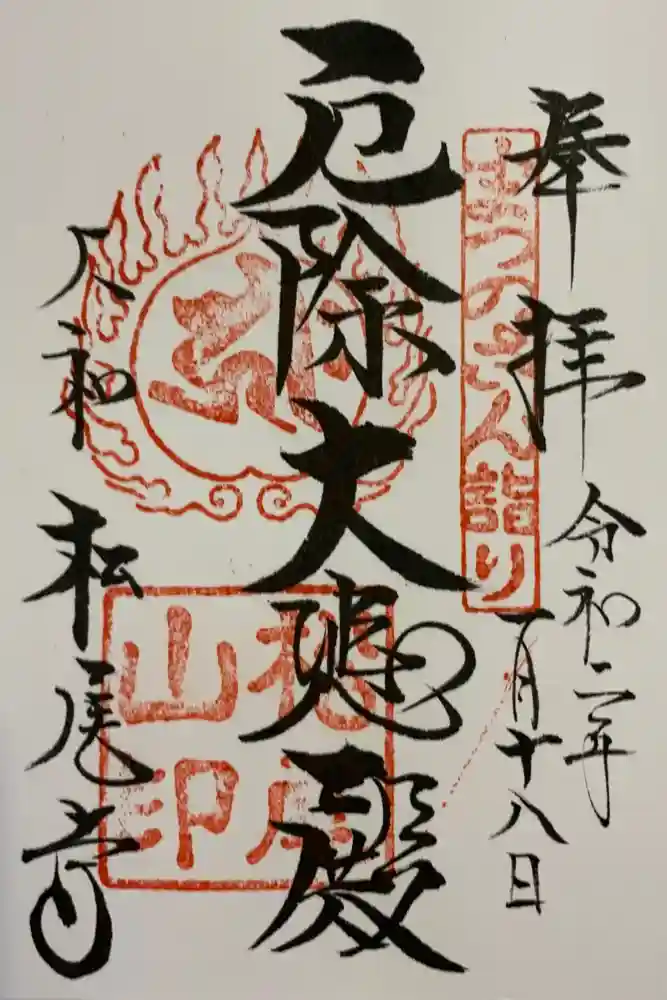 奉拝
まつのさん詣り
令和二年
一月十八日
厄除大悲殿
大和 松尾寺
松尾山印